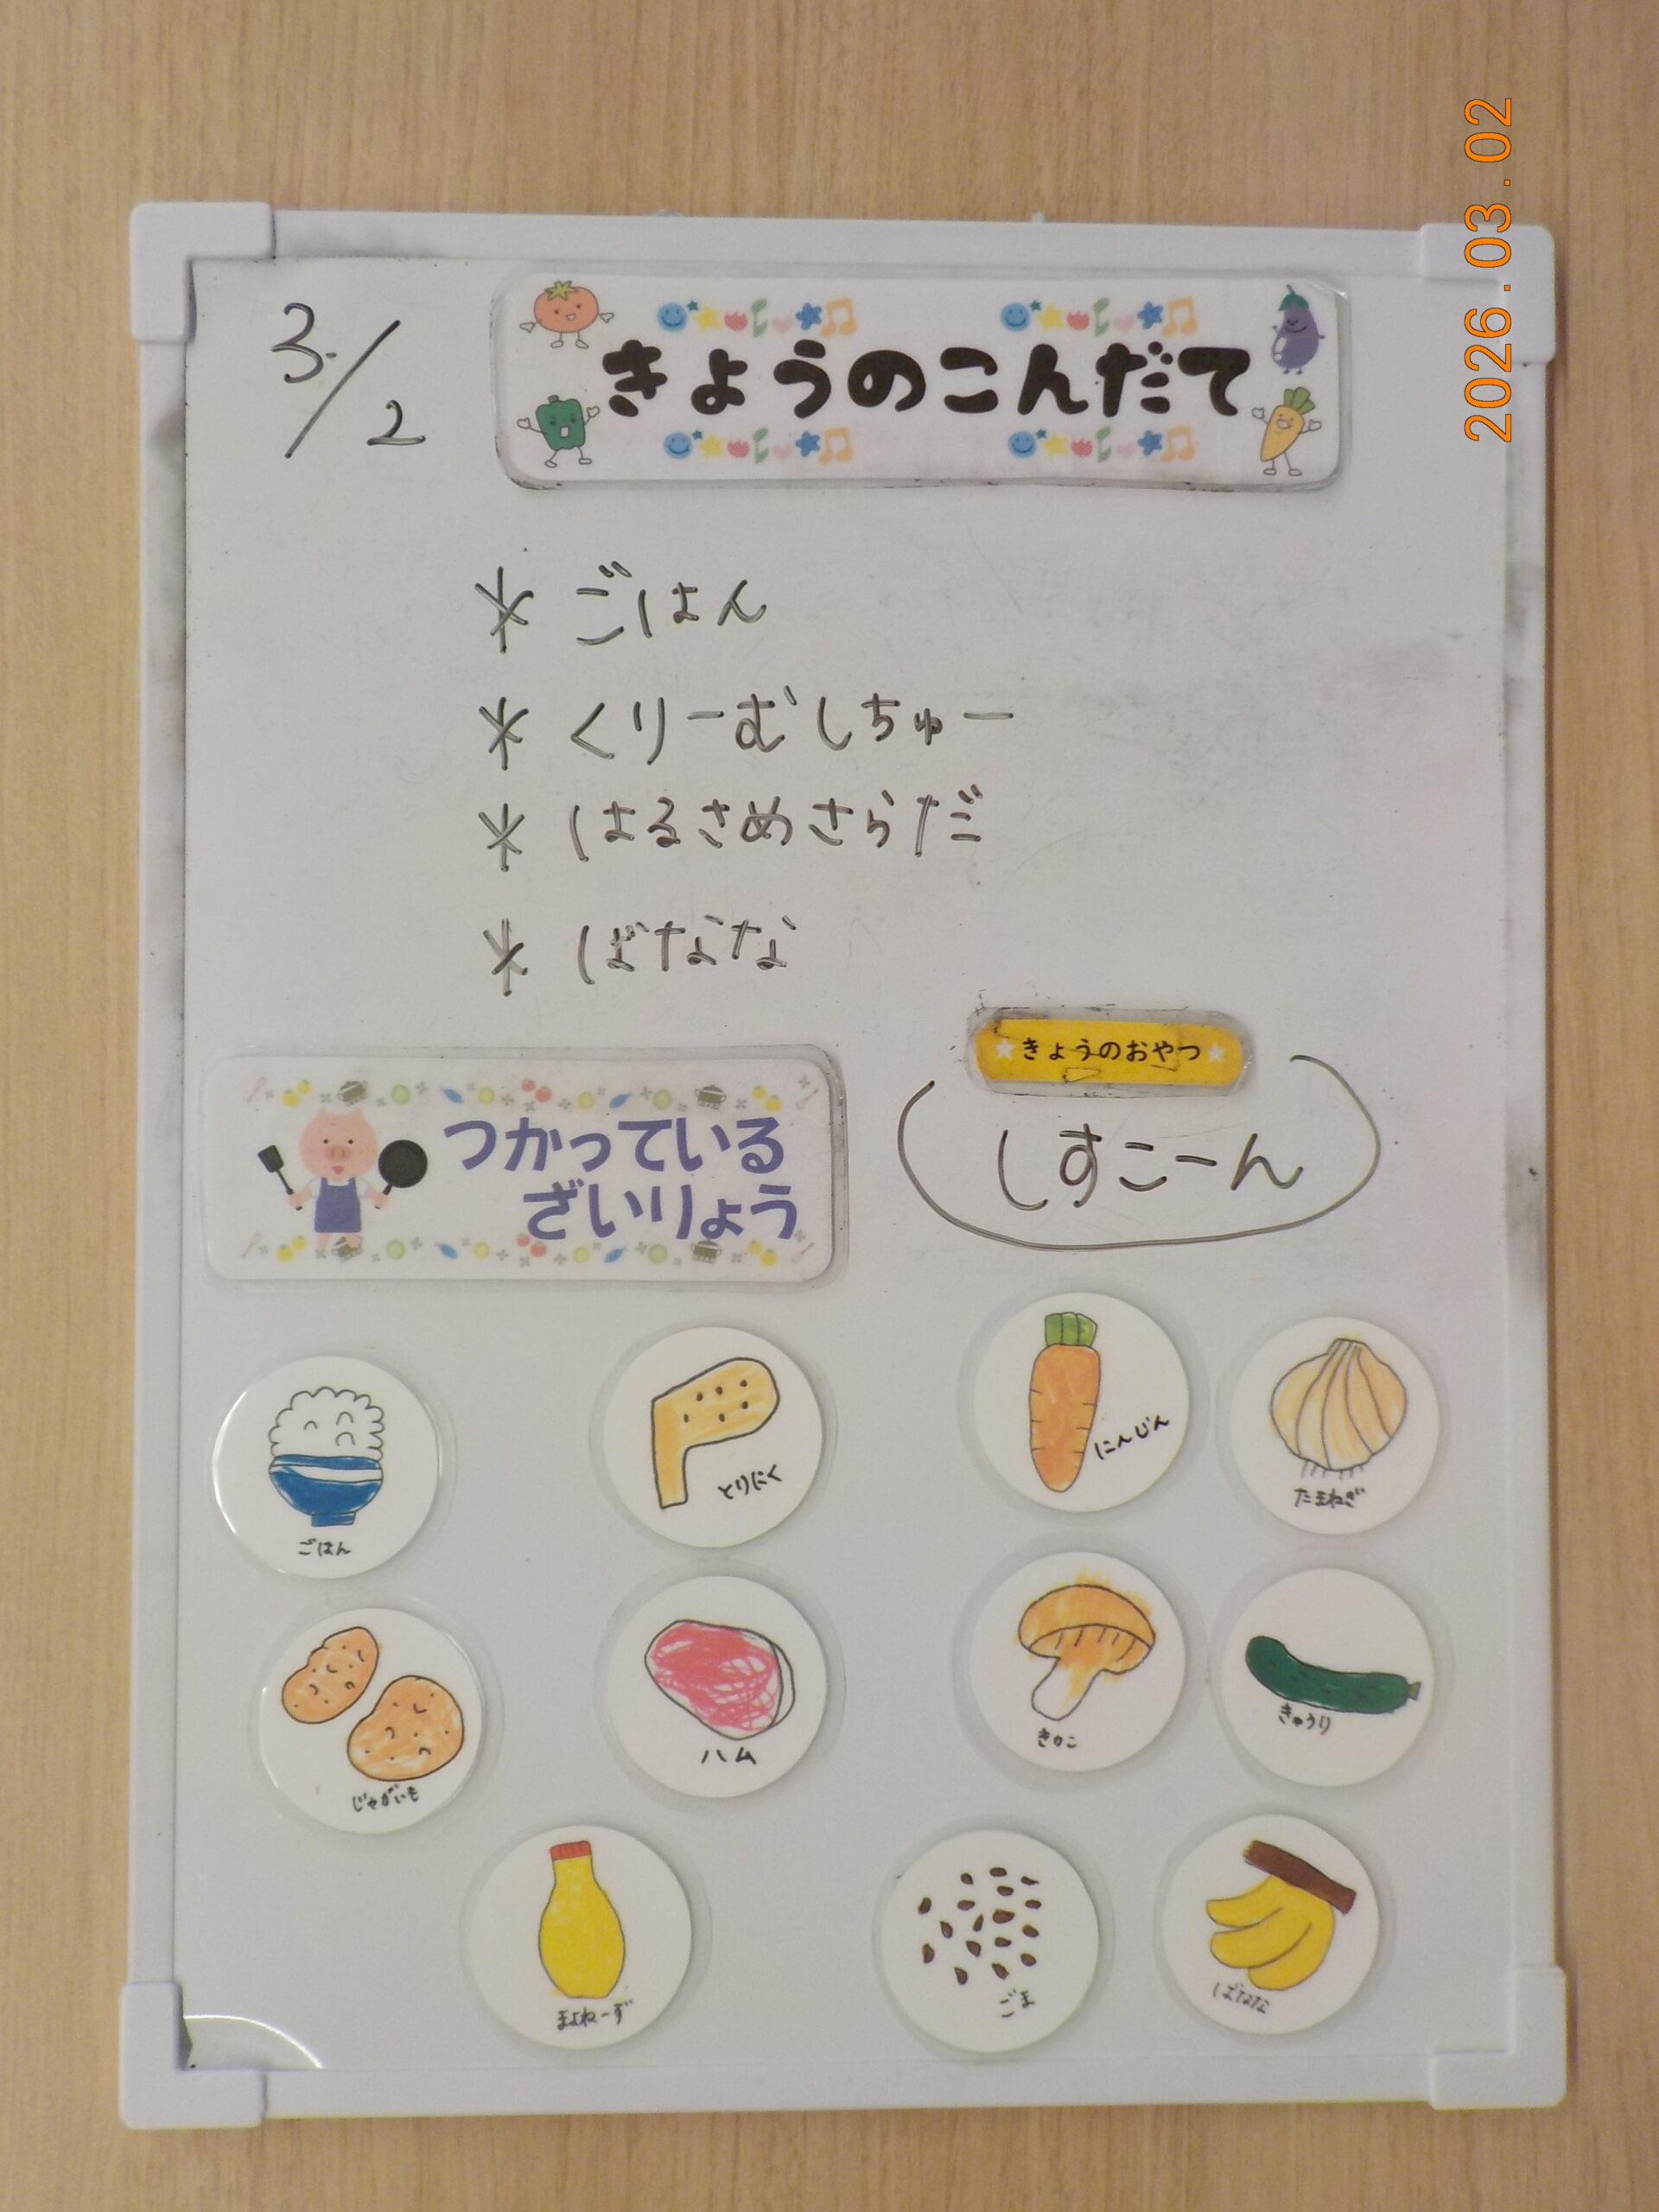 2026.03.02
3/2
きょうのこんだて
* ごはん
* くりーむしちゅー
* はるさめさらだ
* ばなな
きょうのおやつ
しすこーん
つかっている
ざいりょう
ごはん
とりにく
にんじん
たまねぎ
じゃがいも
ハム
きのこ
きゅうり
まよねーず
ごま
ばなな